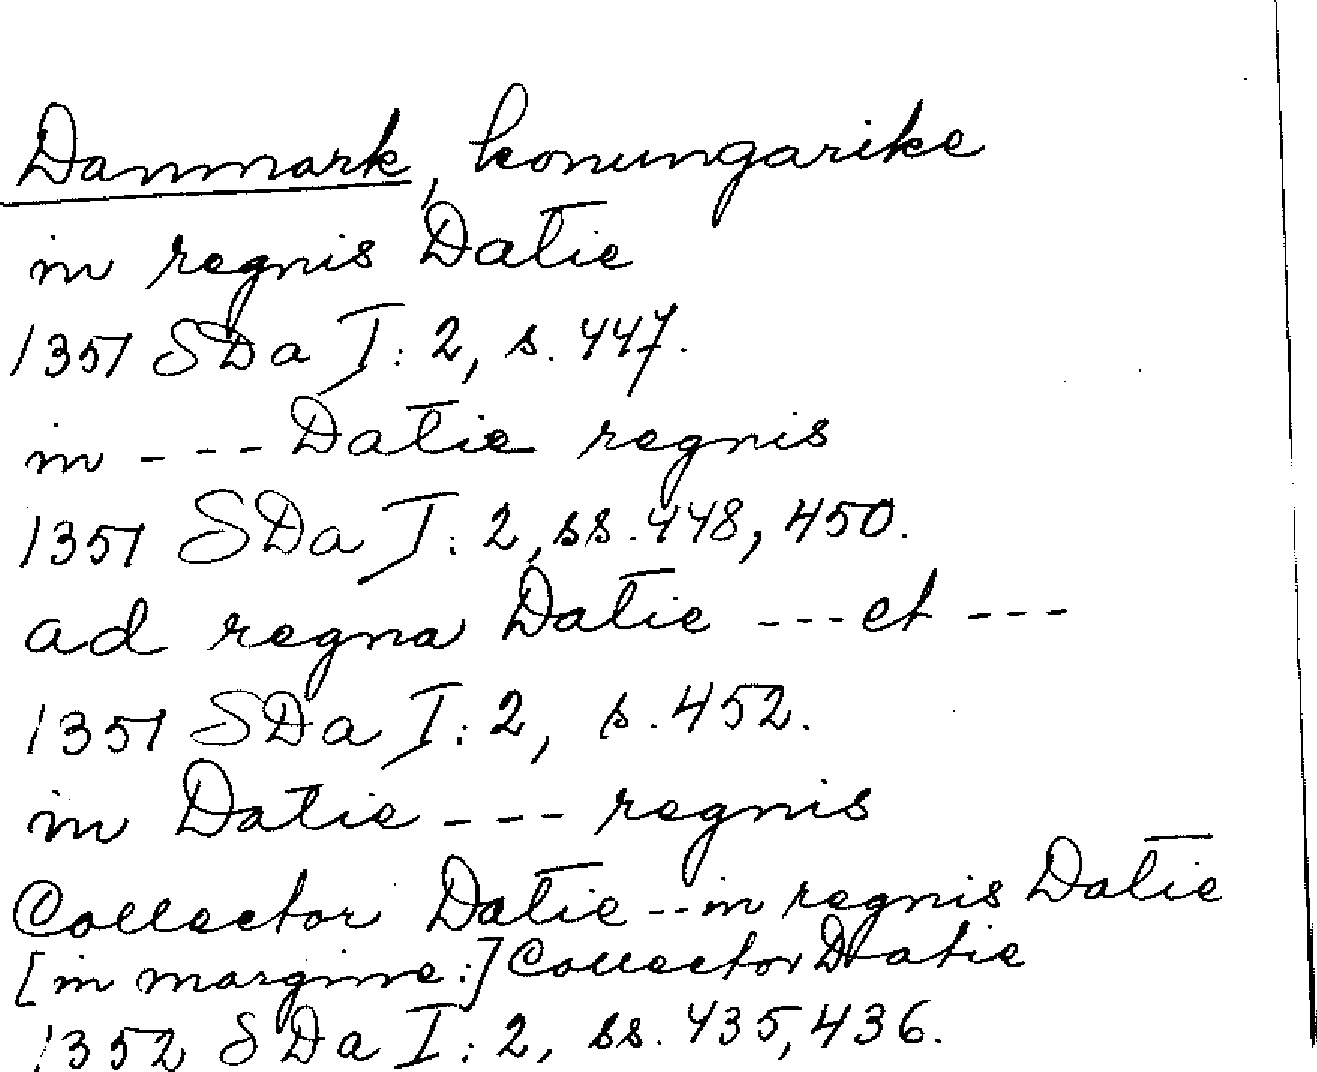 Danmark, konungarike
in regnis Datie
1351 SDa I:2, s. 447.
in --- Datie regnis
1351 SDa I:2, ss. 448, 450.
ad regna Datie --- et ---
1351 SDa I:2, s. 452.
in Datie --- regnis
Collector Datie -- in regnis Datie
[in margine:] Collector Datie
1352 SDa I:2, ss. 435, 436.